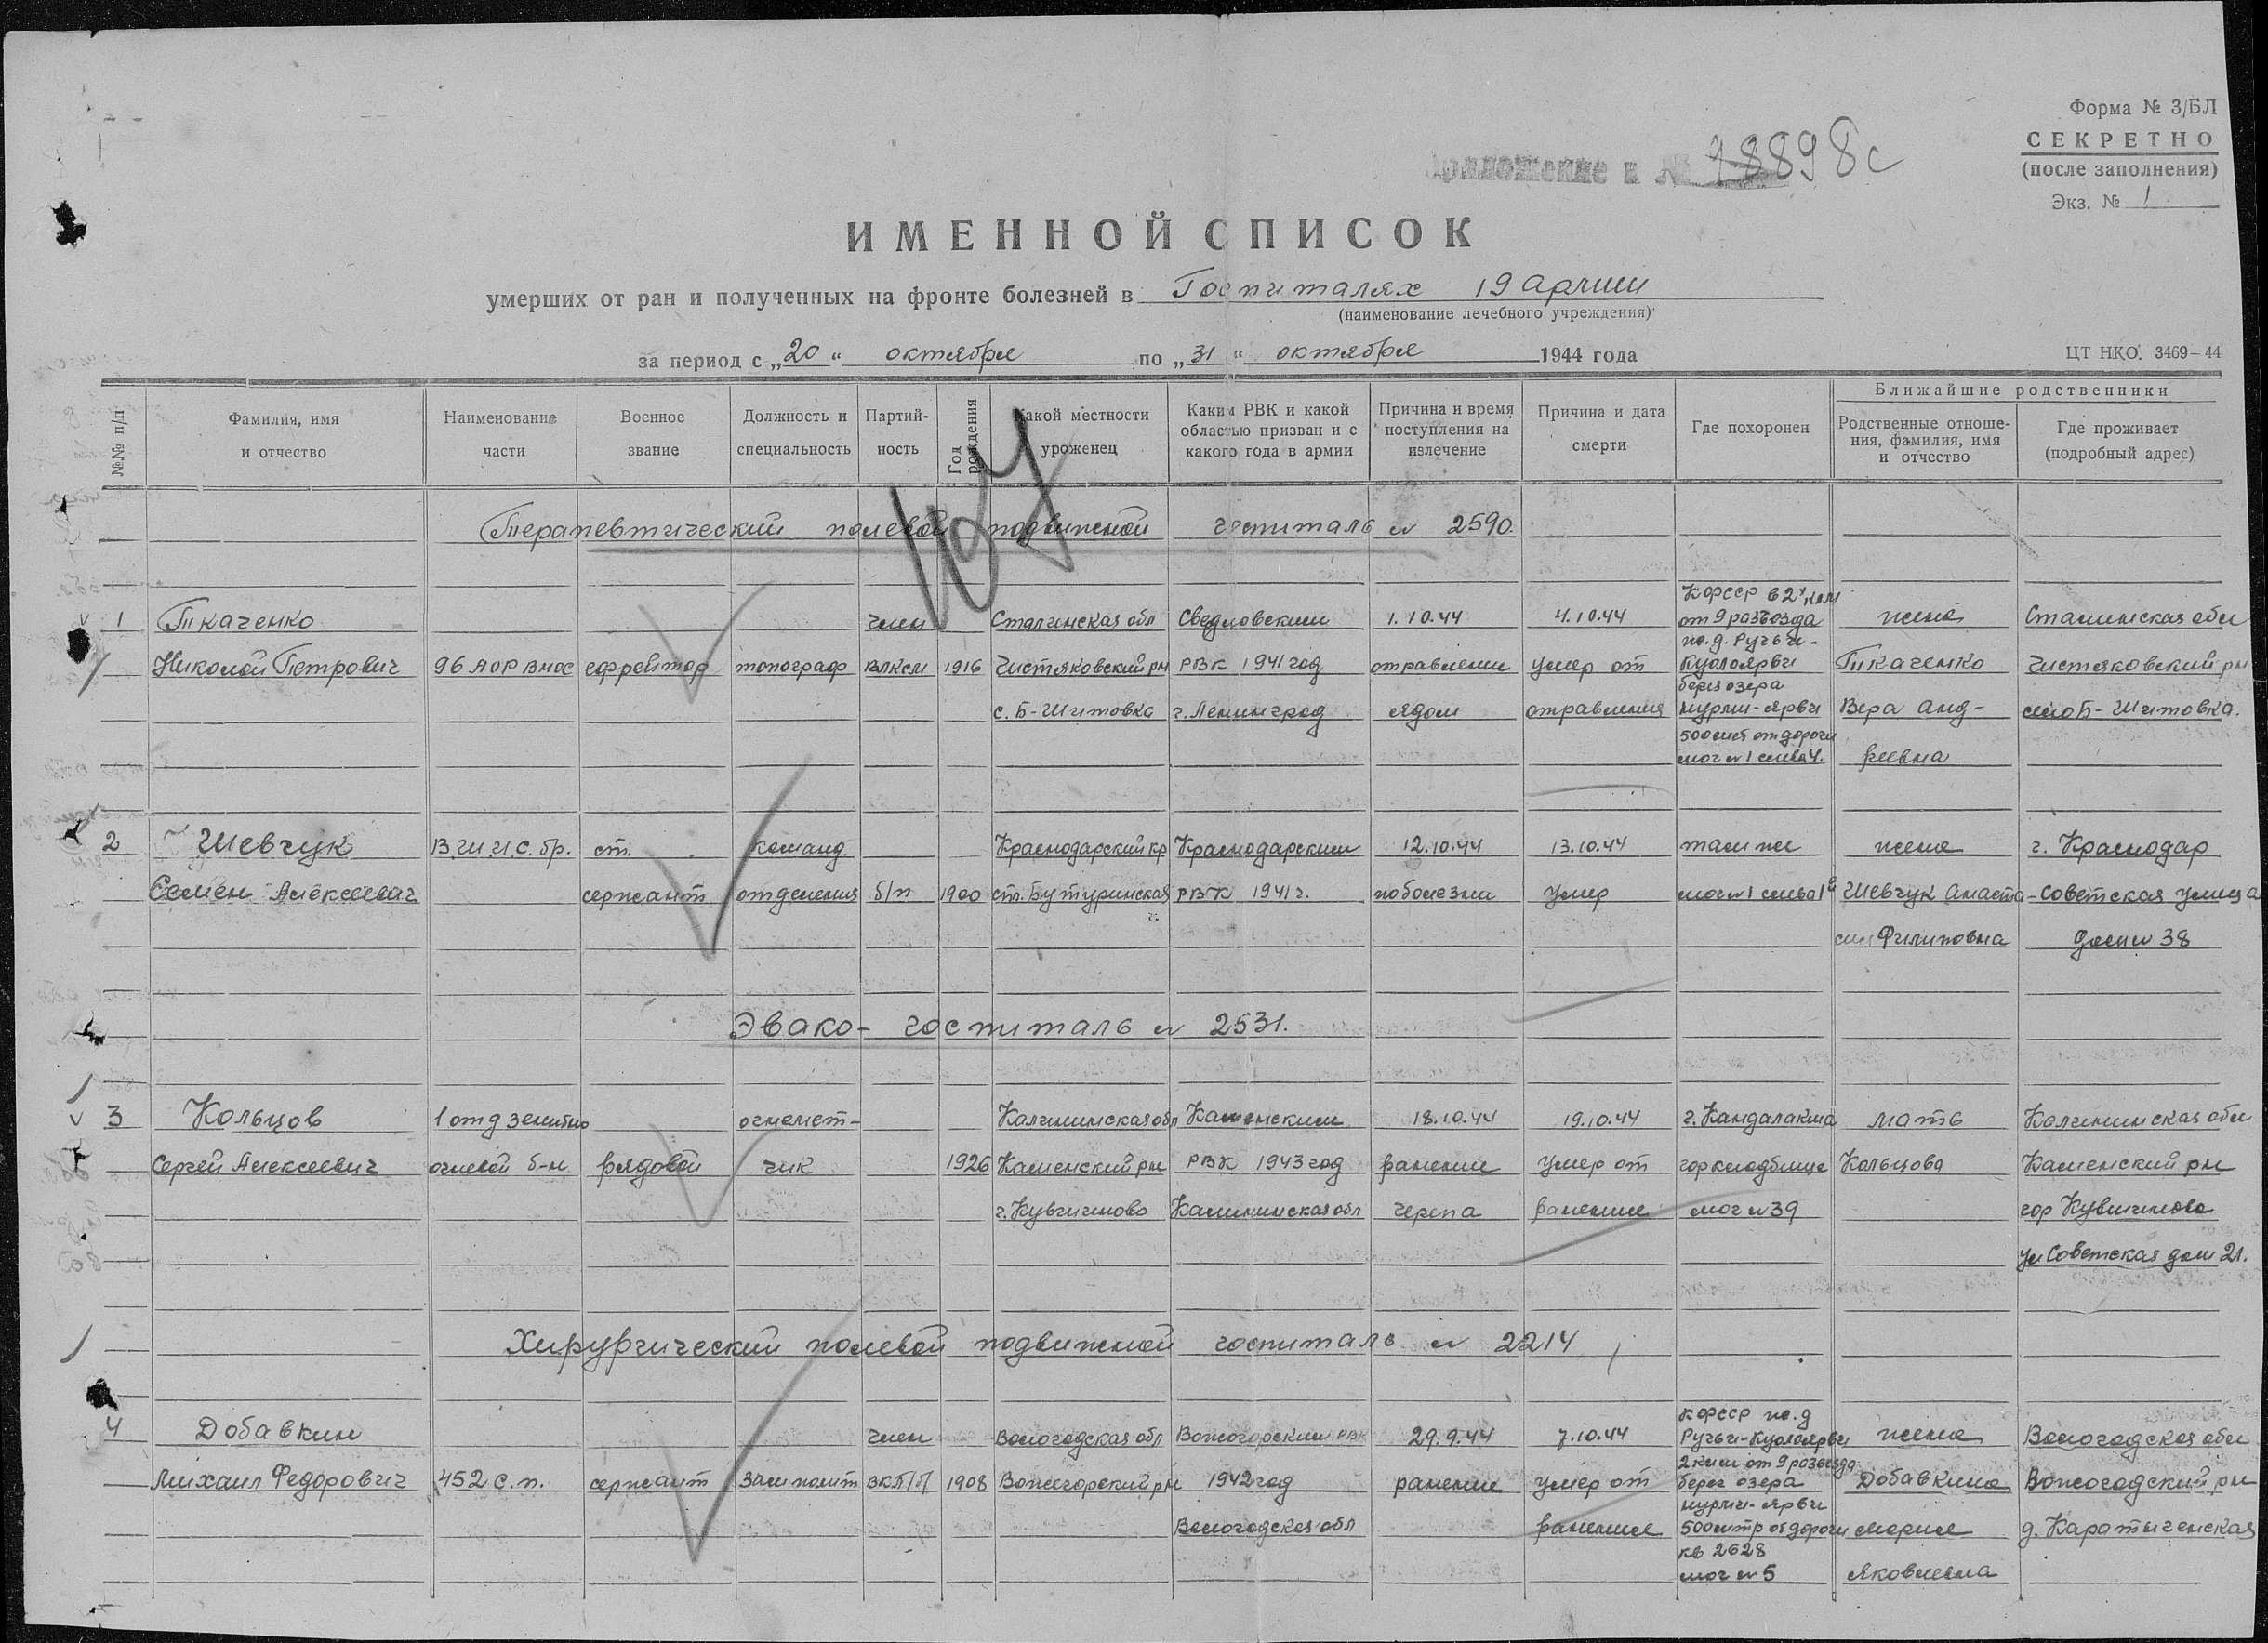 Форма № 3/БЛ
СЕКРЕТНО
(после заполнения)
Экз. № 1
Приложение к № 18898с
ИМЕННОЙ СПИСОК
умерших от ран и полученных на фронте болезней в Госпиталях 19 армии
(наименование лечебного учреждения)
за период с „20“ октября по „31“ октября 1944 года
ЦТ НКО. 3469–44
№№ п/п
Фамилия, имя и отчество
Наименование части
Военное звание
Должность и специальность
Партий-
ность
Год рождения
Какой местности уроженец
Каким РВК и какой областью призван и с какого года в армии
Причина и время поступления на излечение
Причина и дата смерти
Где похоронен
Ближайшие родственники
Родственные отноше-
ния, фамилия, имя и отчество
Где проживает (подробный адрес)
Терапевтический полевой подвижной госпиталь № 2590.
1 Ткаченко член Сталинская обл Свердловским 1.10.44 4.10.44 КФССР в 2х клм от 9 разъезда жена Сталинская обл
Николай Петрович 96 АОР ВНОС ефрейтор топограф ВЛКСМ 1916 Чистяковский рн РВК 1941 год отравление умер от ж.д. Ручьи-Куолоярви Ткаченко Чистяковский рн
с. Б-Шитовка г. Ленинград ядом отравления берег озера Нурми-ярви Вера Анд- село Б-Шитовка.
500 мет от дороги мог № 1 слева 4. реевна
2 Шевчук В.Ш.И.С. бр. ст. команд. Краснодарский кр Краснодарским 12.10.44 13.10.44 там же жена г. Краснодар
Семен Алексеевич сержант отделения б/п 1900 ст. Бутуринская РВК 1941 г. по болезни умер мог № 1 слева 1й Шевчук Анаста- Советская улица
сия Филиповна дом № 38
Эвако- госпиталь № 2531.
3 Кольцов 1 отд зенитно огнемет- Калининская обл Каменским 18.10.44 19.10.44 г. Кандалакша мать Калининская обл
Сергей Алексеевич огневой б-н рядовой чик 1926 Каменский рн РВК 1943 год ранение умер от гор кладбище Кольцова Каменский рн
г. Кувшиново Калининская обл черепа ранения мог № 39 гор Кувшиново
ул Советская дом 21.
Хирургический полевой подвижной госпиталь № 2214
4 Добавкин член Вологодская обл Вожегорским РВК 29.9.44 7.10.44 КФССР ж.д Ручьи-Куолоярви жена Вологодская обл
Михаил Федорович 452 с.п. сержант Зам полит ВКП/б 1908 Вожегорский рн 1942 год ранение умер от 2 клм от 9 разъезда берег озера Добавкина Вожегодский рн
Вологодская обл ранения Нурми-ярви 500 метр от дороги Мария д. Каратыгенская
кв 2628 мог № 5 Яковлевна
107